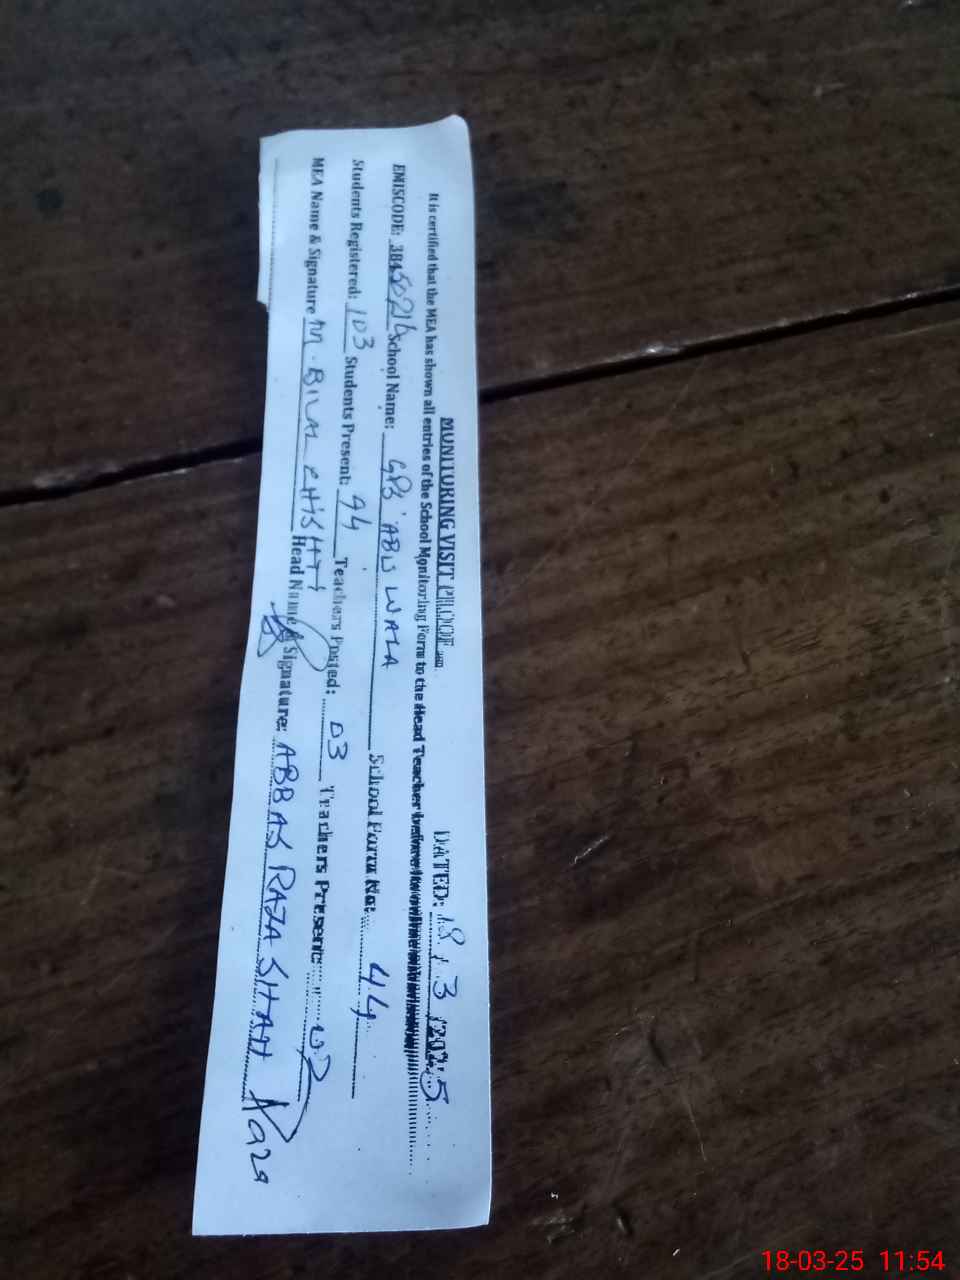 MONITORING VISIT PROOF DATED: 18 / 3 /2025
It is certified that the MEA has shown all entries of the School Monitoring Form to the Head Teacher before
EMISCODE: 38450216 School Name: GPS ABU WALA School Form No: 44
Students Registered: 103 Students Present: 94 Teachers Posted: 03 Teachers Present:
MEA Name & Signature M. BILAL CHISHTI Head Name & Signature: ABBAS RAZA SHAH
18-03-25 11:54